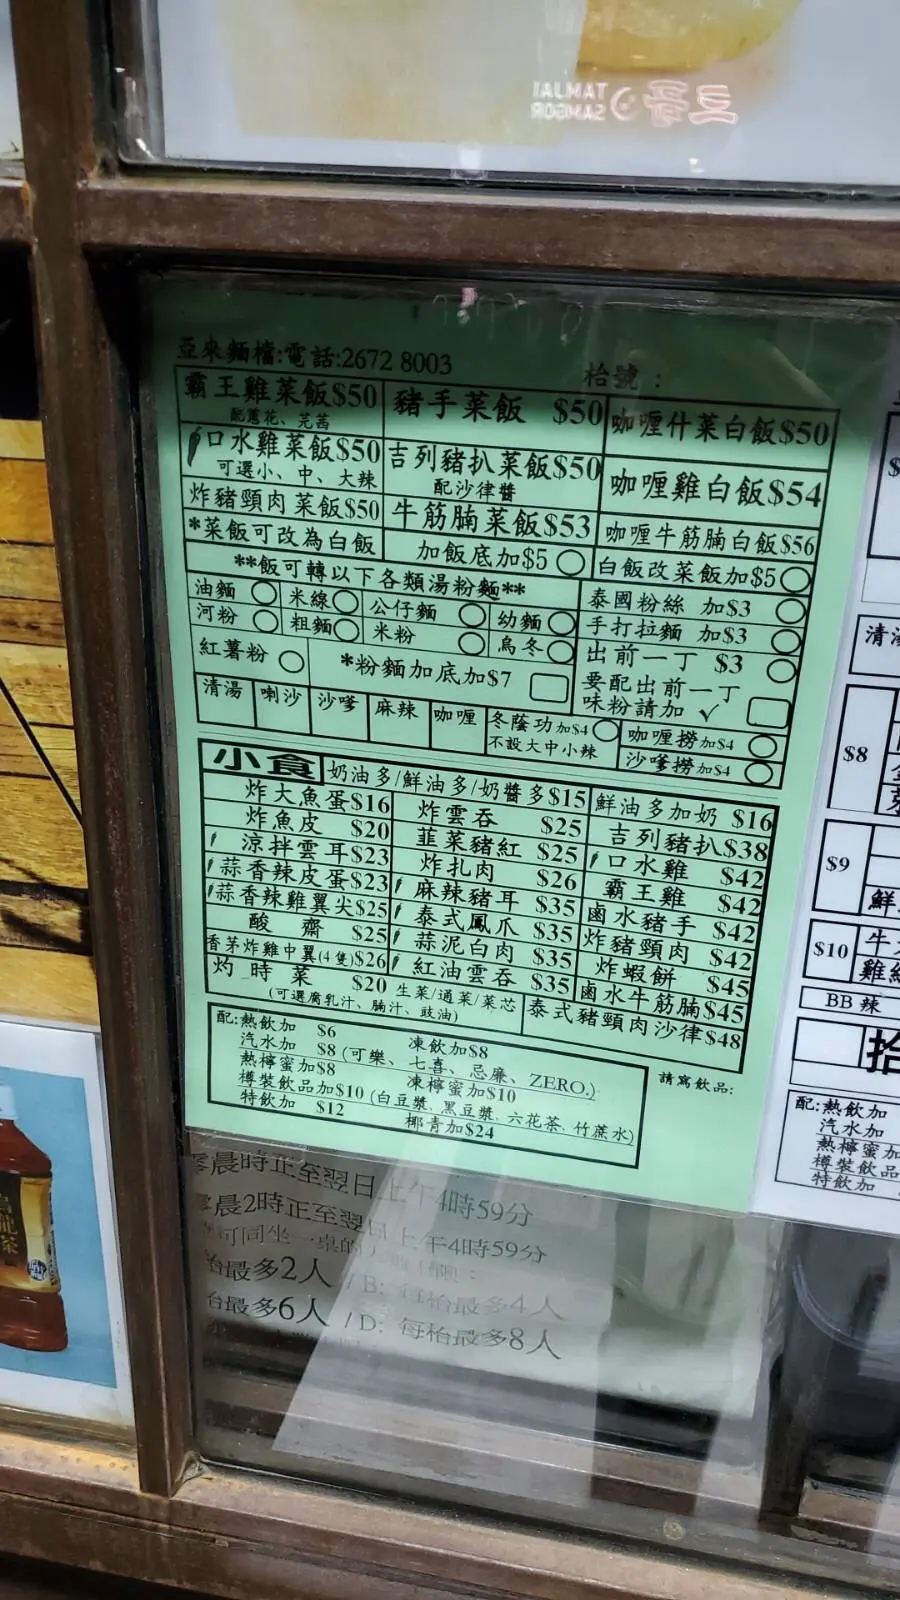 TAMJAI
SAMGOR
三哥
亞來麵檔:電話:2672 8003
枱號:
霸王雞菜飯$50
配蔥花、芫茜
豬手菜飯 $50
咖喱什菜白飯$50
口水雞菜飯$50
可選小、中、大辣
吉列豬扒菜飯$50
配沙律醬
咖喱雞白飯$54
炸豬頸肉菜飯$50
牛筋腩菜飯$53
咖喱牛筋腩白飯$56
*菜飯可改為白飯
加飯底加$5
白飯改菜飯加$5
**飯可轉以下各類湯粉麵**
油麵
米線
公仔麵
幼麵
泰國粉絲 加$3
河粉
粗麵
米粉
烏冬
手打拉麵 加$3
紅薯粉
*粉麵加底加$7
出前一丁 $3
要配出前一丁
味粉請加 ✓
清湯
喇沙
沙嗲
麻辣
咖喱
冬蔭功加$4
不設大中小辣
咖喱撈加$4
沙嗲撈加$4
小食
奶油多/鮮油多/奶醬多$15
鮮油多加奶 $16
炸大魚蛋$16
炸雲吞 $25
吉列豬扒$38
炸魚皮 $20
韮菜豬紅 $25
口水雞 $42
涼拌雲耳$23
炸扎肉 $26
霸王雞 $42
蒜香辣皮蛋$23
麻辣豬耳 $35
鹵水豬手 $42
蒜香辣雞翼尖$25
泰式鳳爪 $35
炸豬頸肉 $42
酸齋 $25
蒜泥白肉 $35
炸蝦餅 $45
香茅炸雞中翼(4隻)$26
紅油雲吞 $35
鹵水牛筋腩$45
灼時菜 $20
生菜/通菜/菜芯
(可選腐乳汁、腩汁、豉油)
泰式豬頸肉沙律$48
配:熱飲加 $6
凍飲加$8
汽水加 $8(可樂、七喜、忌廉、ZERO.)
熱檸蜜加$8
凍檸蜜加$10
樽裝飲品加$10(白豆漿、黑豆漿、六花茶、竹蔗水)
特飲加 $12
椰青加$24
請寫飲品:
晨時正至翌日上午4時59分
晨2時正至翌日上午4時59分
可同坐一桌的
枱最多2人 / B: 每枱最多4人
枱最多6人 / D: 每枱最多8人
清湯
$8
$9
鮮
$10
BB辣
拾
配:熱飲加
汽水加
熱檸蜜加
樽裝飲品
特飲加